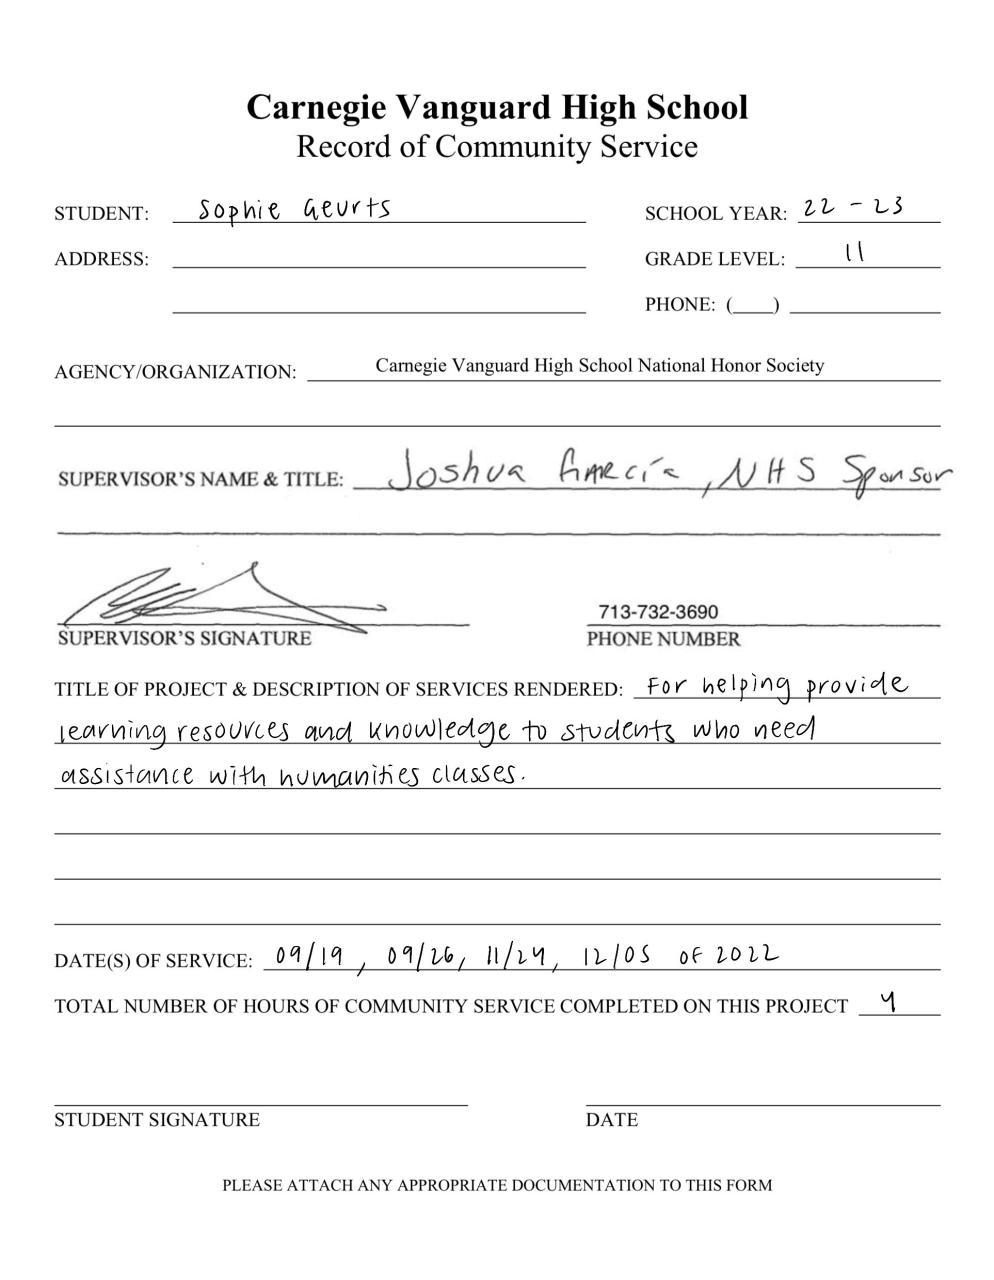 Carnegie Vanguard High School
Record of Community Service
STUDENT: Sophie Geurts SCHOOL YEAR: 22 - 23
ADDRESS: GRADE LEVEL: 11
PHONE: (___)
AGENCY/ORGANIZATION: Carnegie Vanguard High School National Honor Society
SUPERVISOR'S NAME & TITLE: Joshua García, NHS Sponsor
713-732-3690
SUPERVISOR'S SIGNATURE PHONE NUMBER
TITLE OF PROJECT & DESCRIPTION OF SERVICES RENDERED: For helping provide
learning resources and knowledge to students who need
assistance with humanities classes.
DATE(S) OF SERVICE: 09/19, 09/26, 11/24, 12/05 of 2022
TOTAL NUMBER OF HOURS OF COMMUNITY SERVICE COMPLETED ON THIS PROJECT 4
STUDENT SIGNATURE DATE
PLEASE ATTACH ANY APPROPRIATE DOCUMENTATION TO THIS FORM